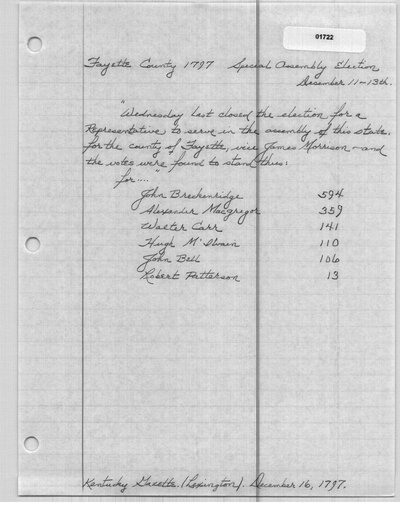 01722
Fayette County 1797 Special Assembly Election
December 11-13th.
"Wednesday last closed the election for a
Representative to serve in the assembly of this state
for the county of Fayette, vice James Morrison - and
the votes were found to stand thus:
for...."
John Breckenridge 594
Alexander MacGregor 359
Walter Carr 141
Hugh M'Ilvain 110
John Bell 106
Robert Patterson 13
Kentucky Gazette. (Lexington). December 16, 1797.